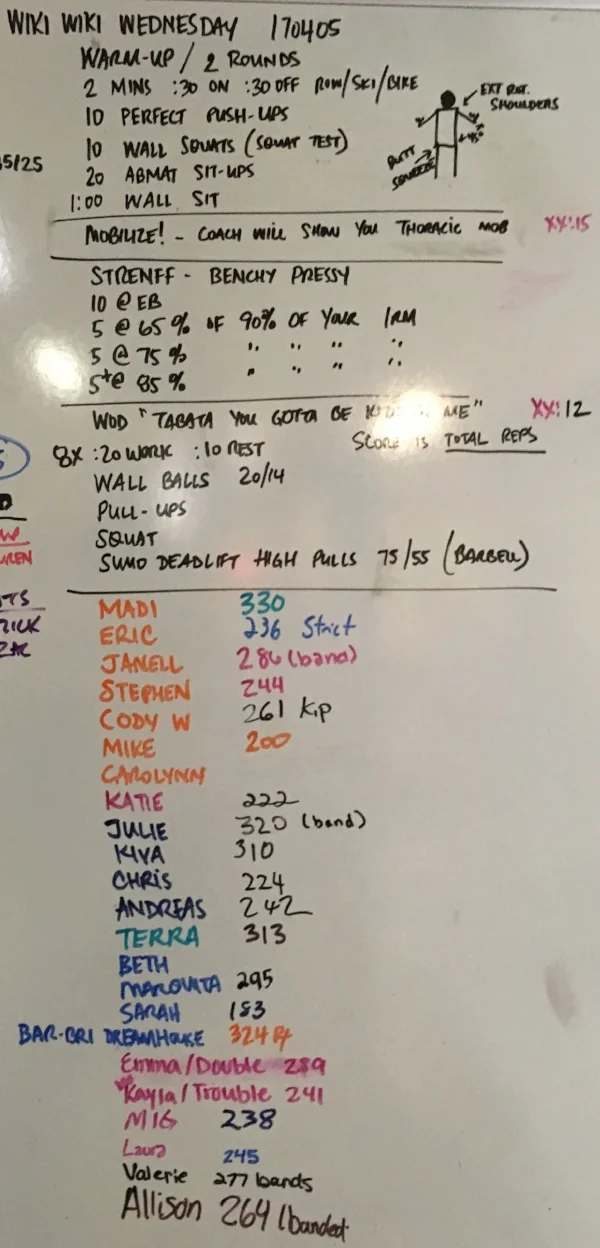 WIKI WIKI WEDNESDAY 170405
WARM-UP / 2 ROUNDS
2 MINS :30 ON :30 OFF ROW/SKI/BIKE
10 PERFECT PUSH-UPS
10 WALL SQUATS (SQUAT TEST)
20 ABMAT SIT-UPS
1:00 WALL SIT
EXT ROT.
SHOULDERS
BUTT
SQUEEZE
5/25
MOBILIZE! - COACH WILL SHOW YOU THORACIC MOB XX:15
STRENFF - BENCHY PRESSY
10 @ EB
5 @ 65% OF 90% OF YOUR 1RM
5 @ 75% " " " "
5+@ 85% " " " "
WOD "TABATA YOU GOTTA BE ME" XX:12
8X :20 WORK :10 REST SCORE IS TOTAL REPS
WALL BALLS 20/14
PULL-UPS
SQUAT
SUMO DEADLIFT HIGH PULLS 75/55 (BARBELL)
MADI 330
ERIC 236 Strict
JANELL 286 (band)
STEPHEN 244
CODY W 261 Kip
MIKE 200
CAROLYNN
KATIE 222
JULIE 320 (band)
KIVA 310
CHRIS 224
ANDREAS 242
TERRA 313
BETH
295
SARAH 183
BAR-BRI DREAMHOUSE 324
Emma/Double 289
Kayla/Trouble 241
MIG 238
Laura 245
Valerie 277 bands
Allison 264 (banded